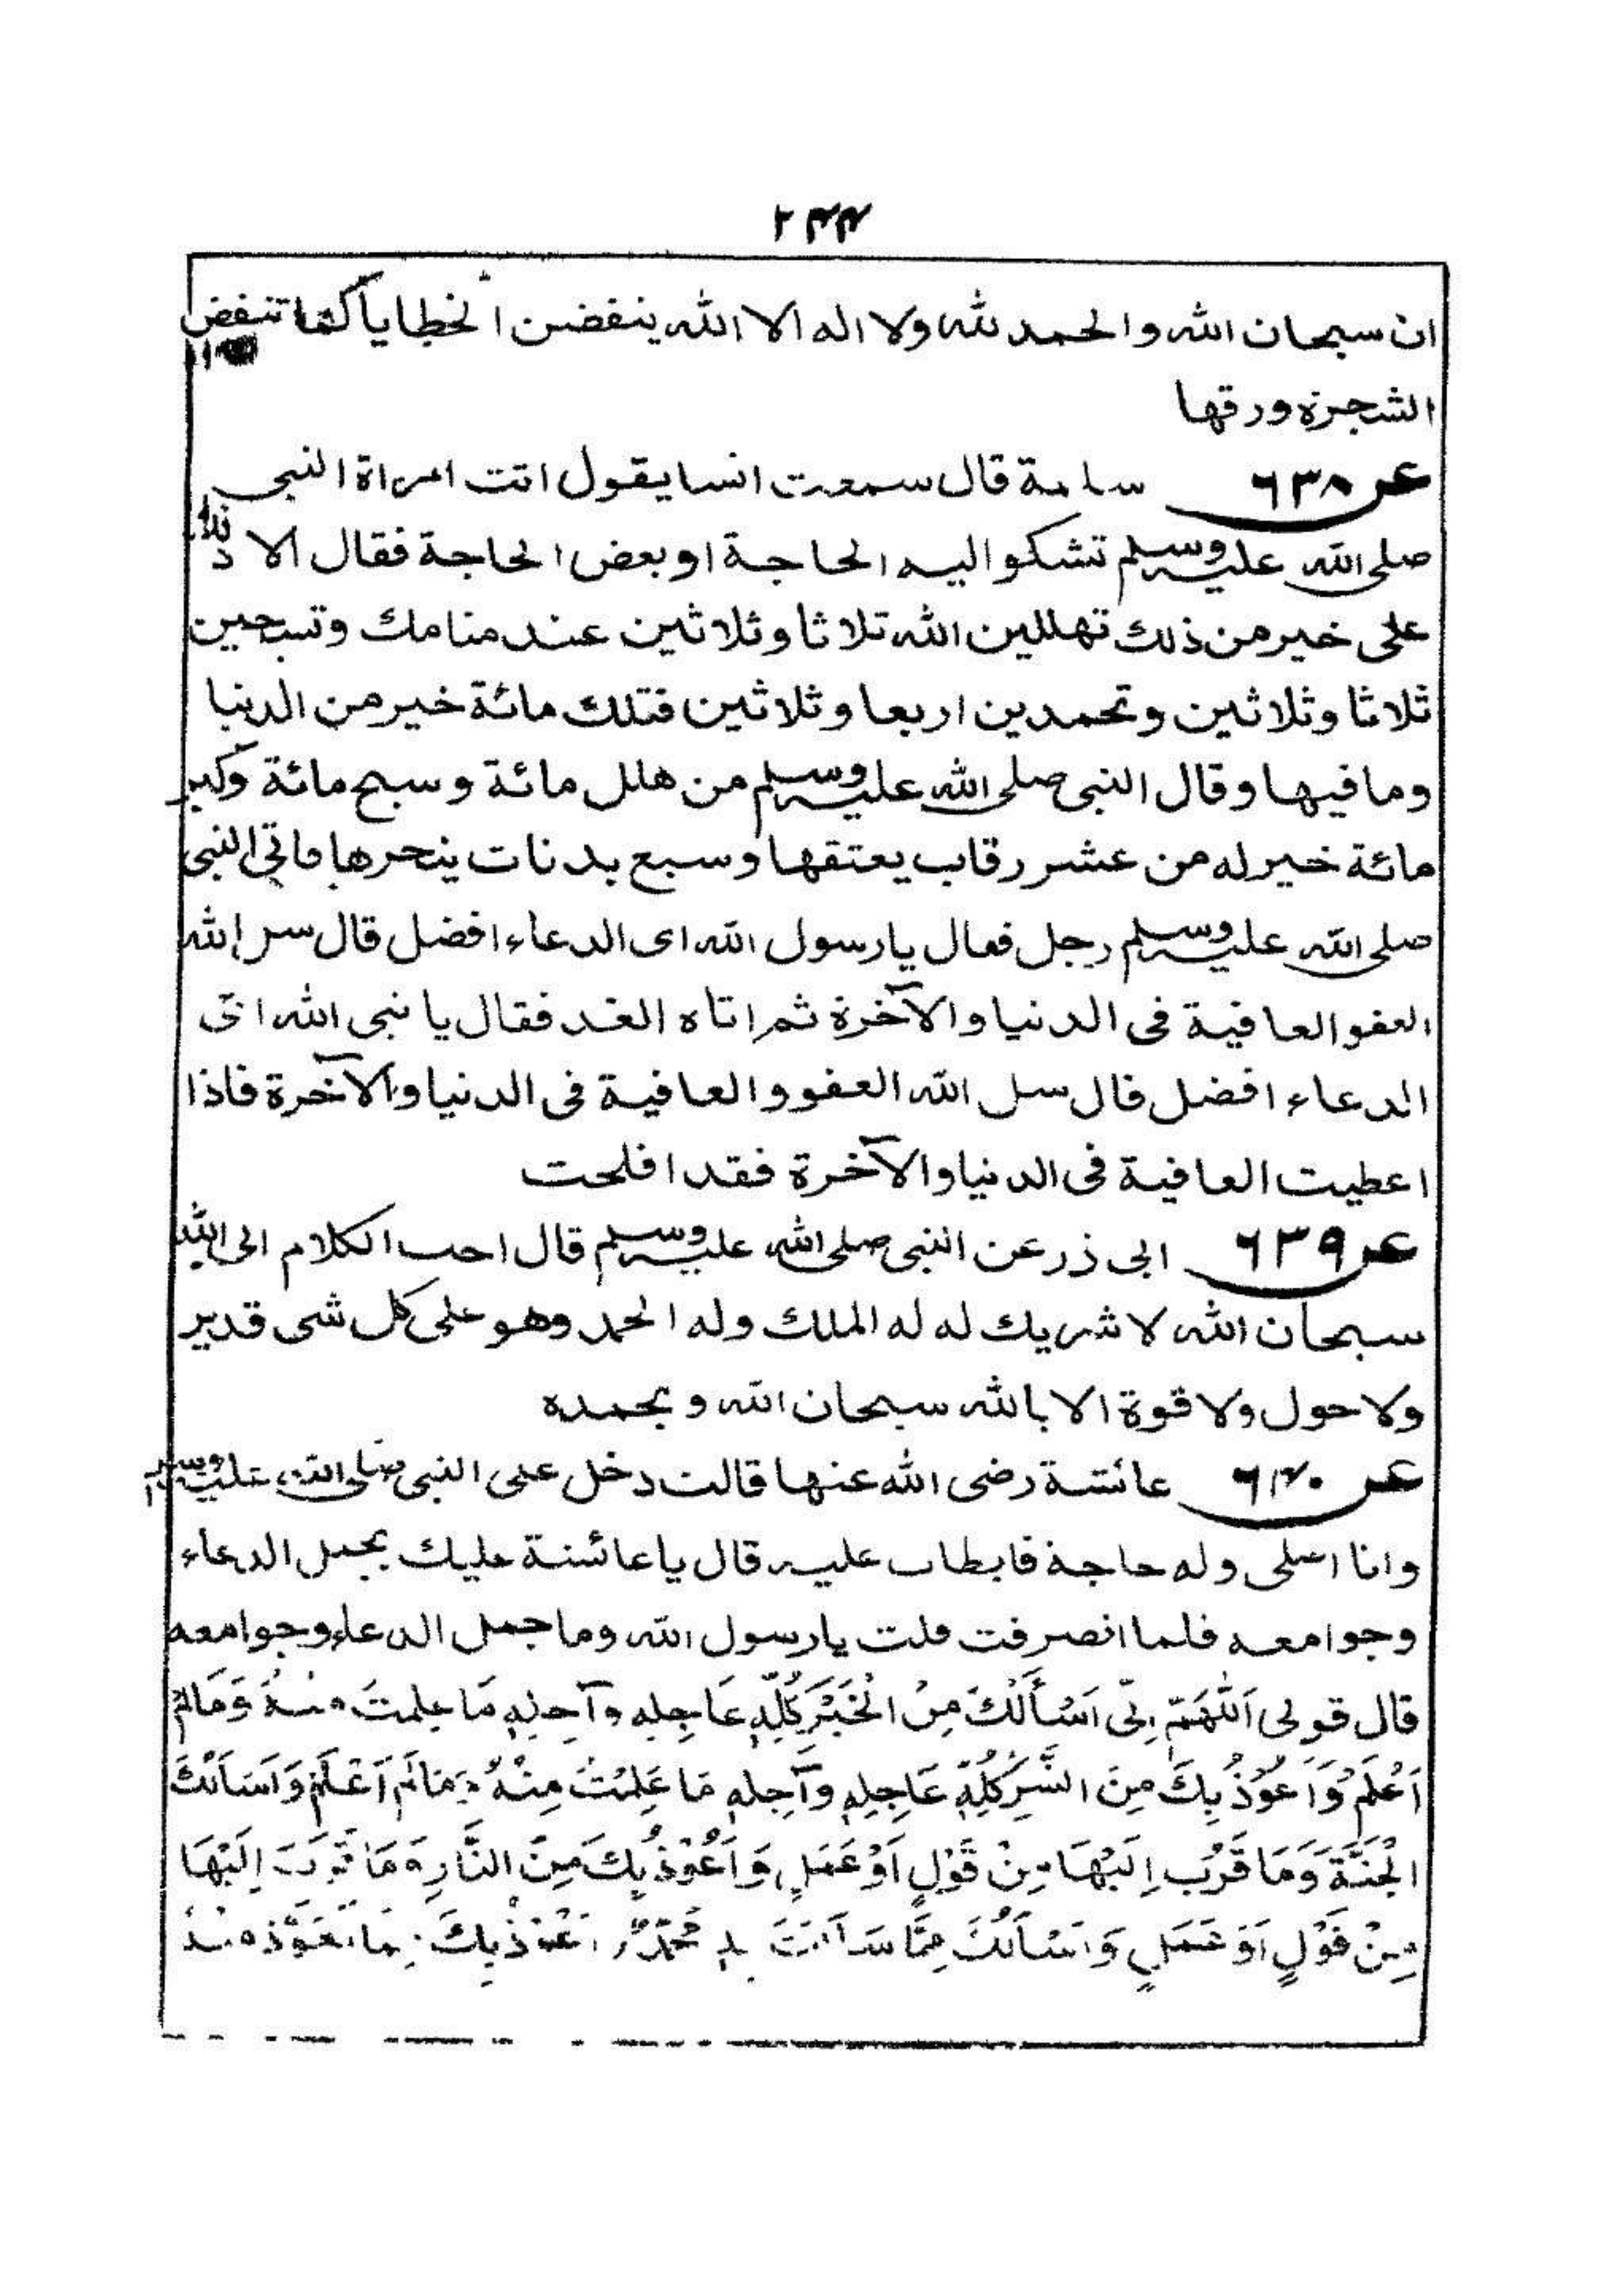 ٢٤٤
ان سبحان الله والحمد لله ولا اله الا الله ينفضن الخطايا كما تنفض
الشجرة ورقها
عن ٦٣٨ سلمة قال سمعت انسا يقول اتت امراة النبى
صلى الله عليه وسلم تشكو اليه الحاجة او بعض الحاجة فقال الا
على خير من ذلك تهللين الله ثلاثا وثلاثين عند منامك وتسبحين
ثلاثا وثلاثين وتحمدين اربعا وثلاثين فتلك مائة خير من الدنيا
وما فيها وقال النبى صلى الله عليه وسلم من هلل مائة وسبح مائة وكبر
مائة خير له من عشر رقاب يعتقها وسبع بدنات ينحرها فاتى النبى
صلى الله عليه وسلم رجل فقال يا رسول الله اى الدعاء افضل قال سل الله
العفو العافية فى الدنيا والآخرة ثم اتاه الغد فقال يا نبى الله اى
الدعاء افضل قال سل الله العفو والعافية فى الدنيا والآخرة فاذا
اعطيت العافية فى الدنيا والآخرة فقد افلحت
عن ٦٣٩ ابى ذر عن النبى صلى الله عليه وسلم قال احب الكلام الى الله
سبحان الله لا شريك له له الملك وله الحمد وهو على كل شى قدير
ولا حول ولا قوة الا بالله سبحان الله وبحمده
عن ٦٤٠ عائشة رضى الله عنها قالت دخل على النبى صلى الله عليه وسلم
وانا اصلى وله حاجة فابطات عليه قال يا عائشة عليك بجمل الدعاء
وجوامعه فلما انصرفت قلت يا رسول الله وما جمل الدعاء وجوامعه
قال قولى اَللّٰهُمَّ اِنِّى اَسْأَلُكَ مِنَ الْخَيْرِ كُلِّهِ عَاجِلِهِ وَآجِلِهِ مَا عَلِمْتُ مِنْهُ وَمَا لَمْ
اَعْلَمْ وَاَعُوْذُ بِكَ مِنَ الشَّرِّ كُلِّهِ عَاجِلِهِ وَآجِلِهِ مَا عَلِمْتُ مِنْهُ وَمَا لَمْ اَعْلَمْ وَاَسْاَلُكَ
الْجَنَّةَ وَمَا قَرَّبَ اِلَيْهَا مِنْ قَوْلٍ اَوْ عَمَلٍ وَاَعُوْذُ بِكَ مِنَ النَّارِ وَمَا قَرَّبَ اِلَيْهَا
مِنْ قَوْلٍ اَوْ عَمَلٍ وَاَسْاَلُكَ مِمَّا سَاَلَكَ بِهِ مُحَمَّدٌ وَاَعُوْذُ بِكَ مِمَّا تَعَوَّذَ مِنْهُ